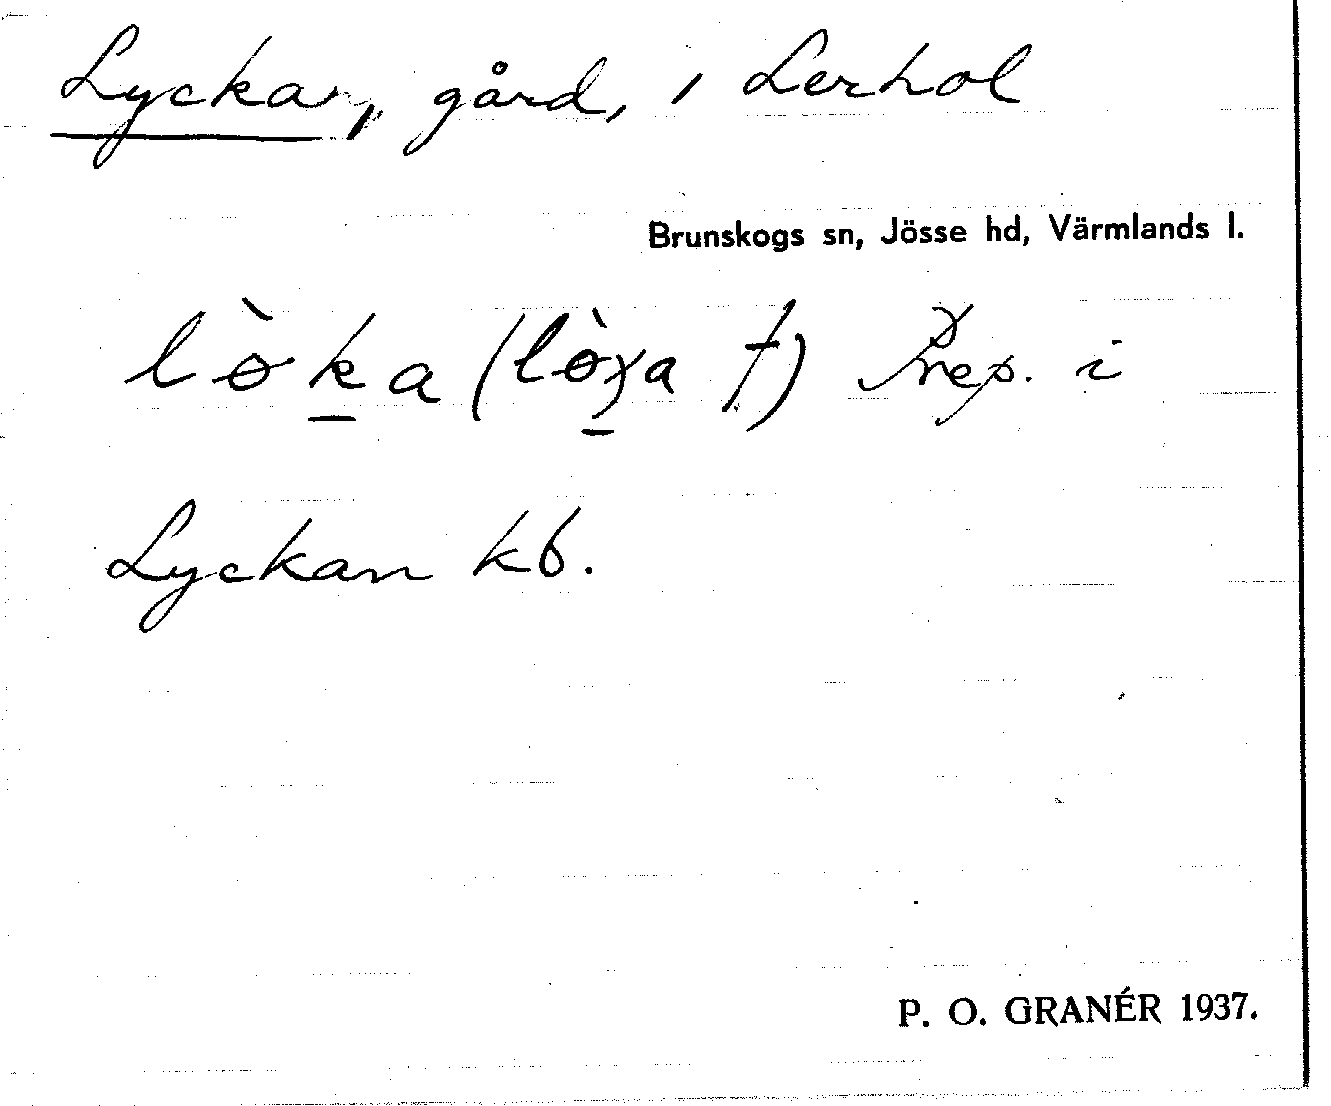 Lyckan, gård, i Lerhol
Brunskogs sn, Jösse hd, Värmlands l.
lø̀k̲a (lø̀χ̲a †) Prep. i
Lyckan kb.
P. O. GRANÉR 1937.